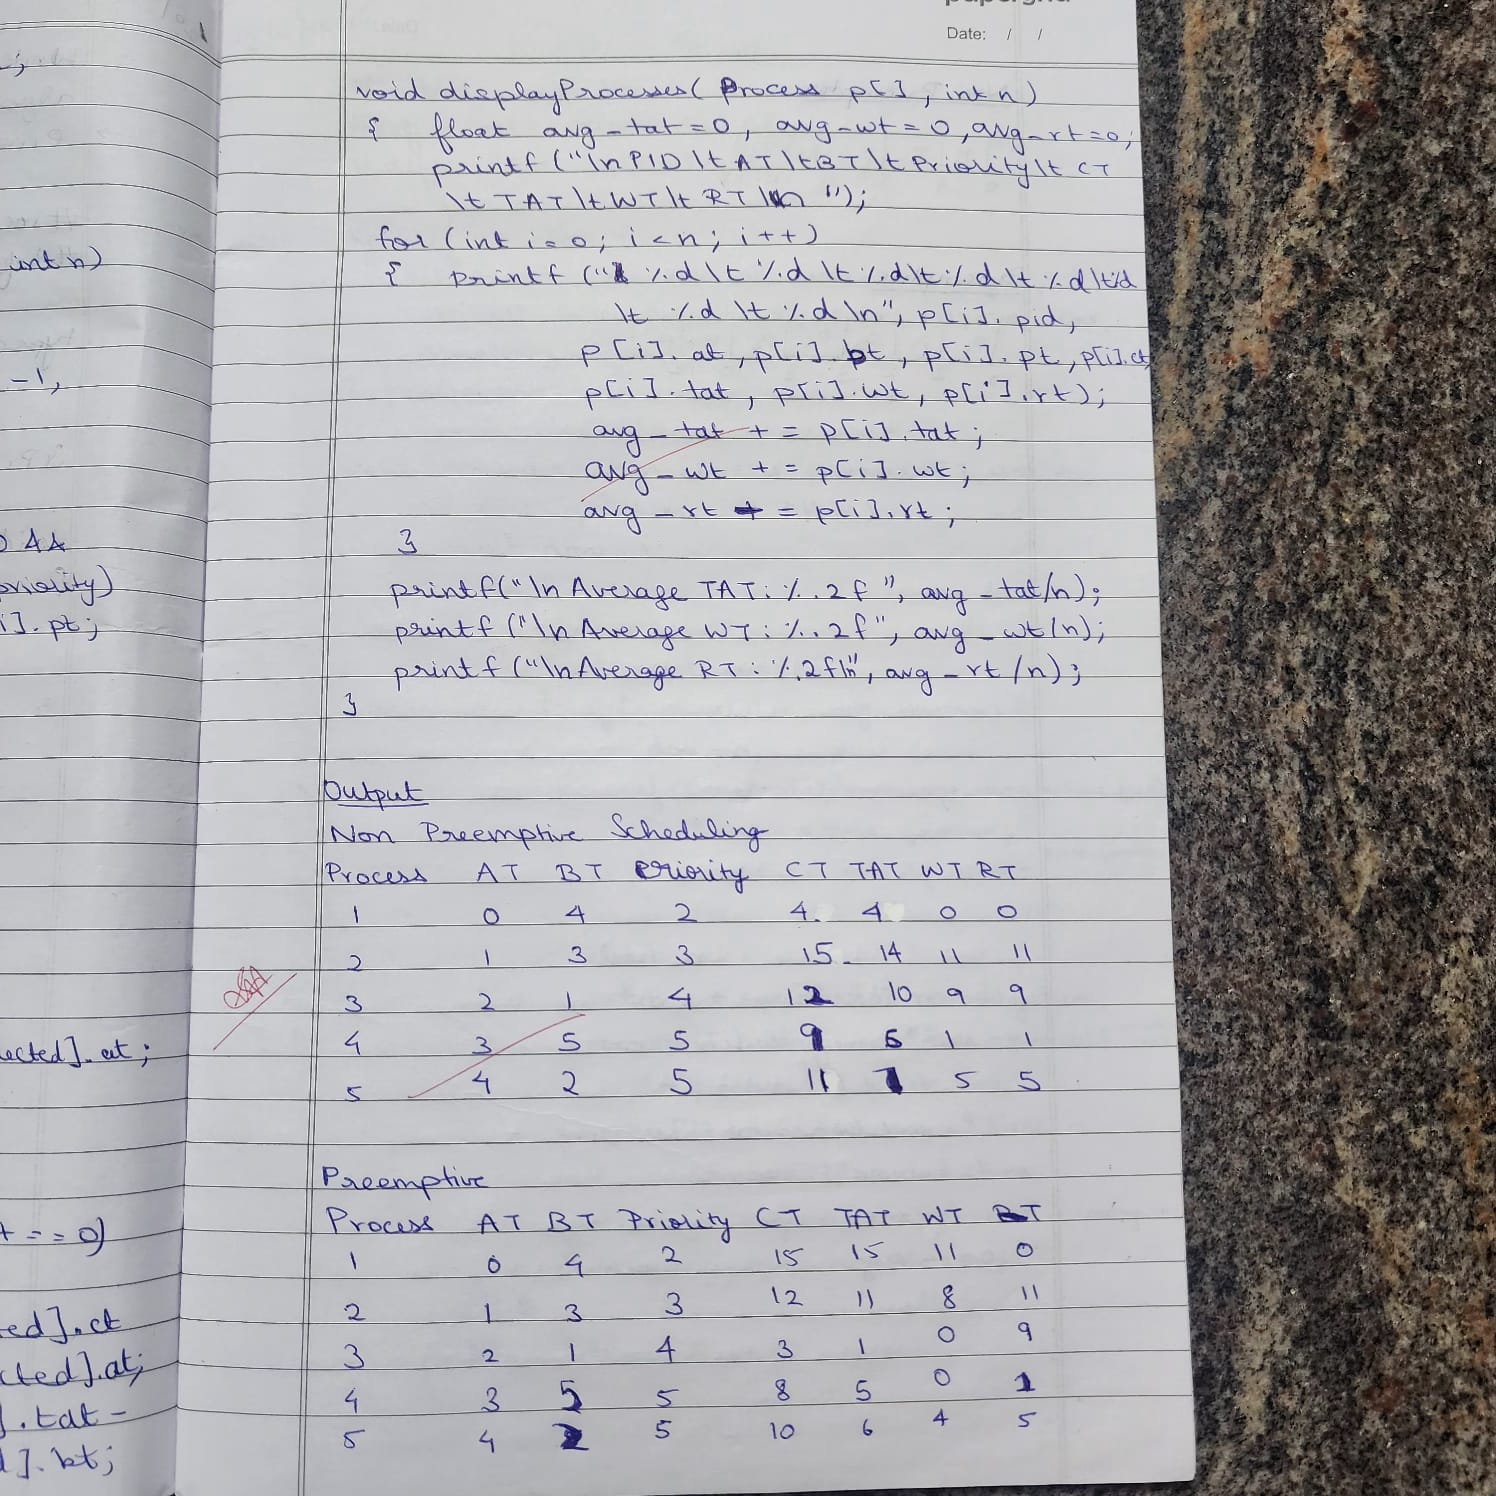 Date: / /
;
int n)
-1,
priority)
i]. pt;
ected]. at;
t == 0)
ed]. ct
cted]. at;
]. tat -
]. bt;
void displayProcesses( Process p[], int n)
{ float avg_tat = 0, avg_wt = 0, avg_rt = 0;
printf ("\n PID \t AT \t BT \t Priority \t CT
\t TAT \t WT \t RT \n ");
for (int i = 0; i < n; i++)
{ printf (" %d \t %d \t %d \t %d \t %d \t %d
\t %d \t %d \n", p[i]. pid,
p[i]. at, p[i]. bt, p[i]. pt, p[i]. ct
p[i]. tat, p[i]. wt, p[i]. rt);
avg_tat += p[i]. tat;
avg_wt += p[i]. wt;
avg_rt += p[i]. rt;
}
printf("\n Average TAT: %.2f ", avg_tat/n);
printf ("\n Average WT: %.2f", avg_wt/n);
printf ("\n Average RT: %.2f\n", avg_rt /n);
}
Output
Non Preemptive Scheduling
Process AT BT Priority CT TAT WT RT
1 0 4 2 4 4 0 0
2 1 3 3 15 14 11 11
3 2 1 4 12 10 9 9
4 3 5 5 9 6 1 1
5 4 2 5 11 7 5 5
Preemptive
Process AT BT Priority CT TAT WT RT
1 0 4 2 15 15 11 0
2 1 3 3 12 11 8 11
3 2 1 4 3 1 0 9
4 3 5 5 8 5 0 1
5 4 2 5 10 6 4 5